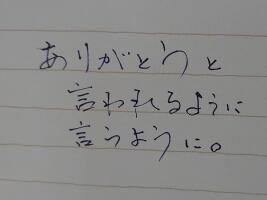 ありがとうと
言われるように
言うように。